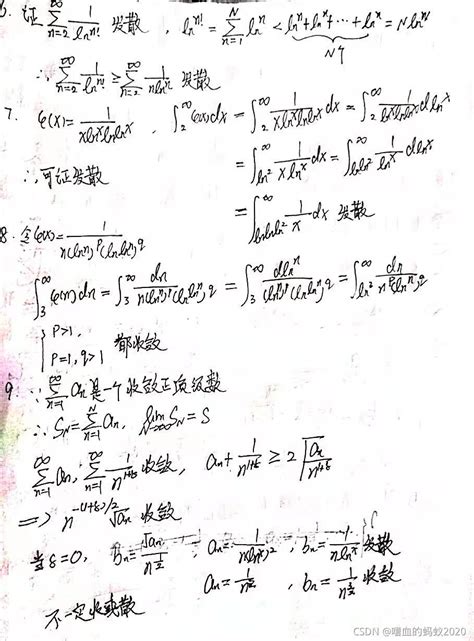 证 ∑_{n=2}^{∞} 1/ln^{n!} 发散, ln^{n!} = ∑_{n=1}^{N} ln^n < ln^n+ln^n+…+ln^n = N ln^n
N个
∴ ∑_{n=2}^{∞} 1/ln^{n!} ≥ ∑_{n=2}^{∞} 1/(n ln^n) 发散
7. φ(x)= 1/(x ln^x ln ln^x), ∫_2^∞ φ(x)dx = ∫_2^∞ 1/(x ln^x ln ln^x) dx = ∫_2^∞ 1/(ln^x ln ln^x) d ln^x
= ∫_{ln^2}^∞ 1/(x ln^x) dx = ∫_{ln^2}^∞ 1/ln^x d ln^x
∴ 可证发散
= ∫_{ln ln^2}^∞ 1/x dx 发散
8. 令 φ(x)= 1/(n(ln^n)^p (ln ln^n)^q)
∫_3^∞ φ(n)dn = ∫_3^∞ dn/(n(ln^n)^p (ln ln^n)^q) = ∫_3^∞ d ln^n/((ln^n)^p (ln ln^n)^q) = ∫_{ln^2}^∞ dn/(n^p (ln^n)^q)
{ P>1,
P=1, q>1 都收敛
9. ∵ ∑_{n=1}^{∞} a_n 是一个收敛正项级数
∴ S_N = ∑_{n=1}^{N} a_n, lim_{N→∞} S_N = S
∑_{n=1}^{∞} a_n, ∑_{n=1}^{∞} 1/n^{1+δ} 收敛, a_n + 1/n^{1+δ} ≥ 2√(a_n/n^{1+δ})
=> n^{-(1+δ)/2} √a_n 收敛
当 δ=0, b_n = √a_n/n^{1/2}, a_n = 1/(n(ln^n)^2), b_n = 1/(n ln^n) 发散
b_n = 收敛
不一定收或散
CSDN @嗜血的蚂蚁2020